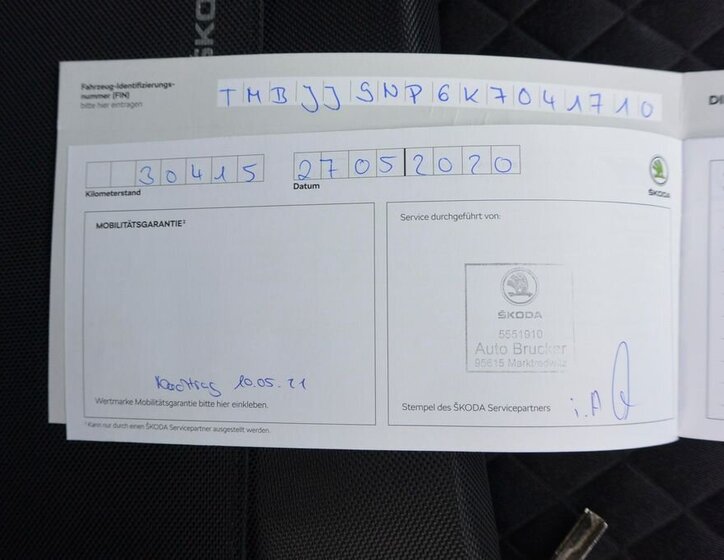 ŠKO
Fahrzeug-Identifizierungs-
nummer (FIN)
bitte hier eintragen
TMBJJ9NP6K7041710
DI
30415
27052020
Kilometerstand
Datum
ŠKODA
MOBILITÄTSGARANTIE²
Service durchgeführt von:
ŠKODA
5551910
Auto Brucker
95615 Marktredwitz
Nachtrag 10.05.21
Wertmarke Mobilitätsgarantie bitte hier einkleben.
Stempel des ŠKODA Servicepartners
i.A
² Kann nur durch einen ŠKODA Servicepartner ausgestellt werden.